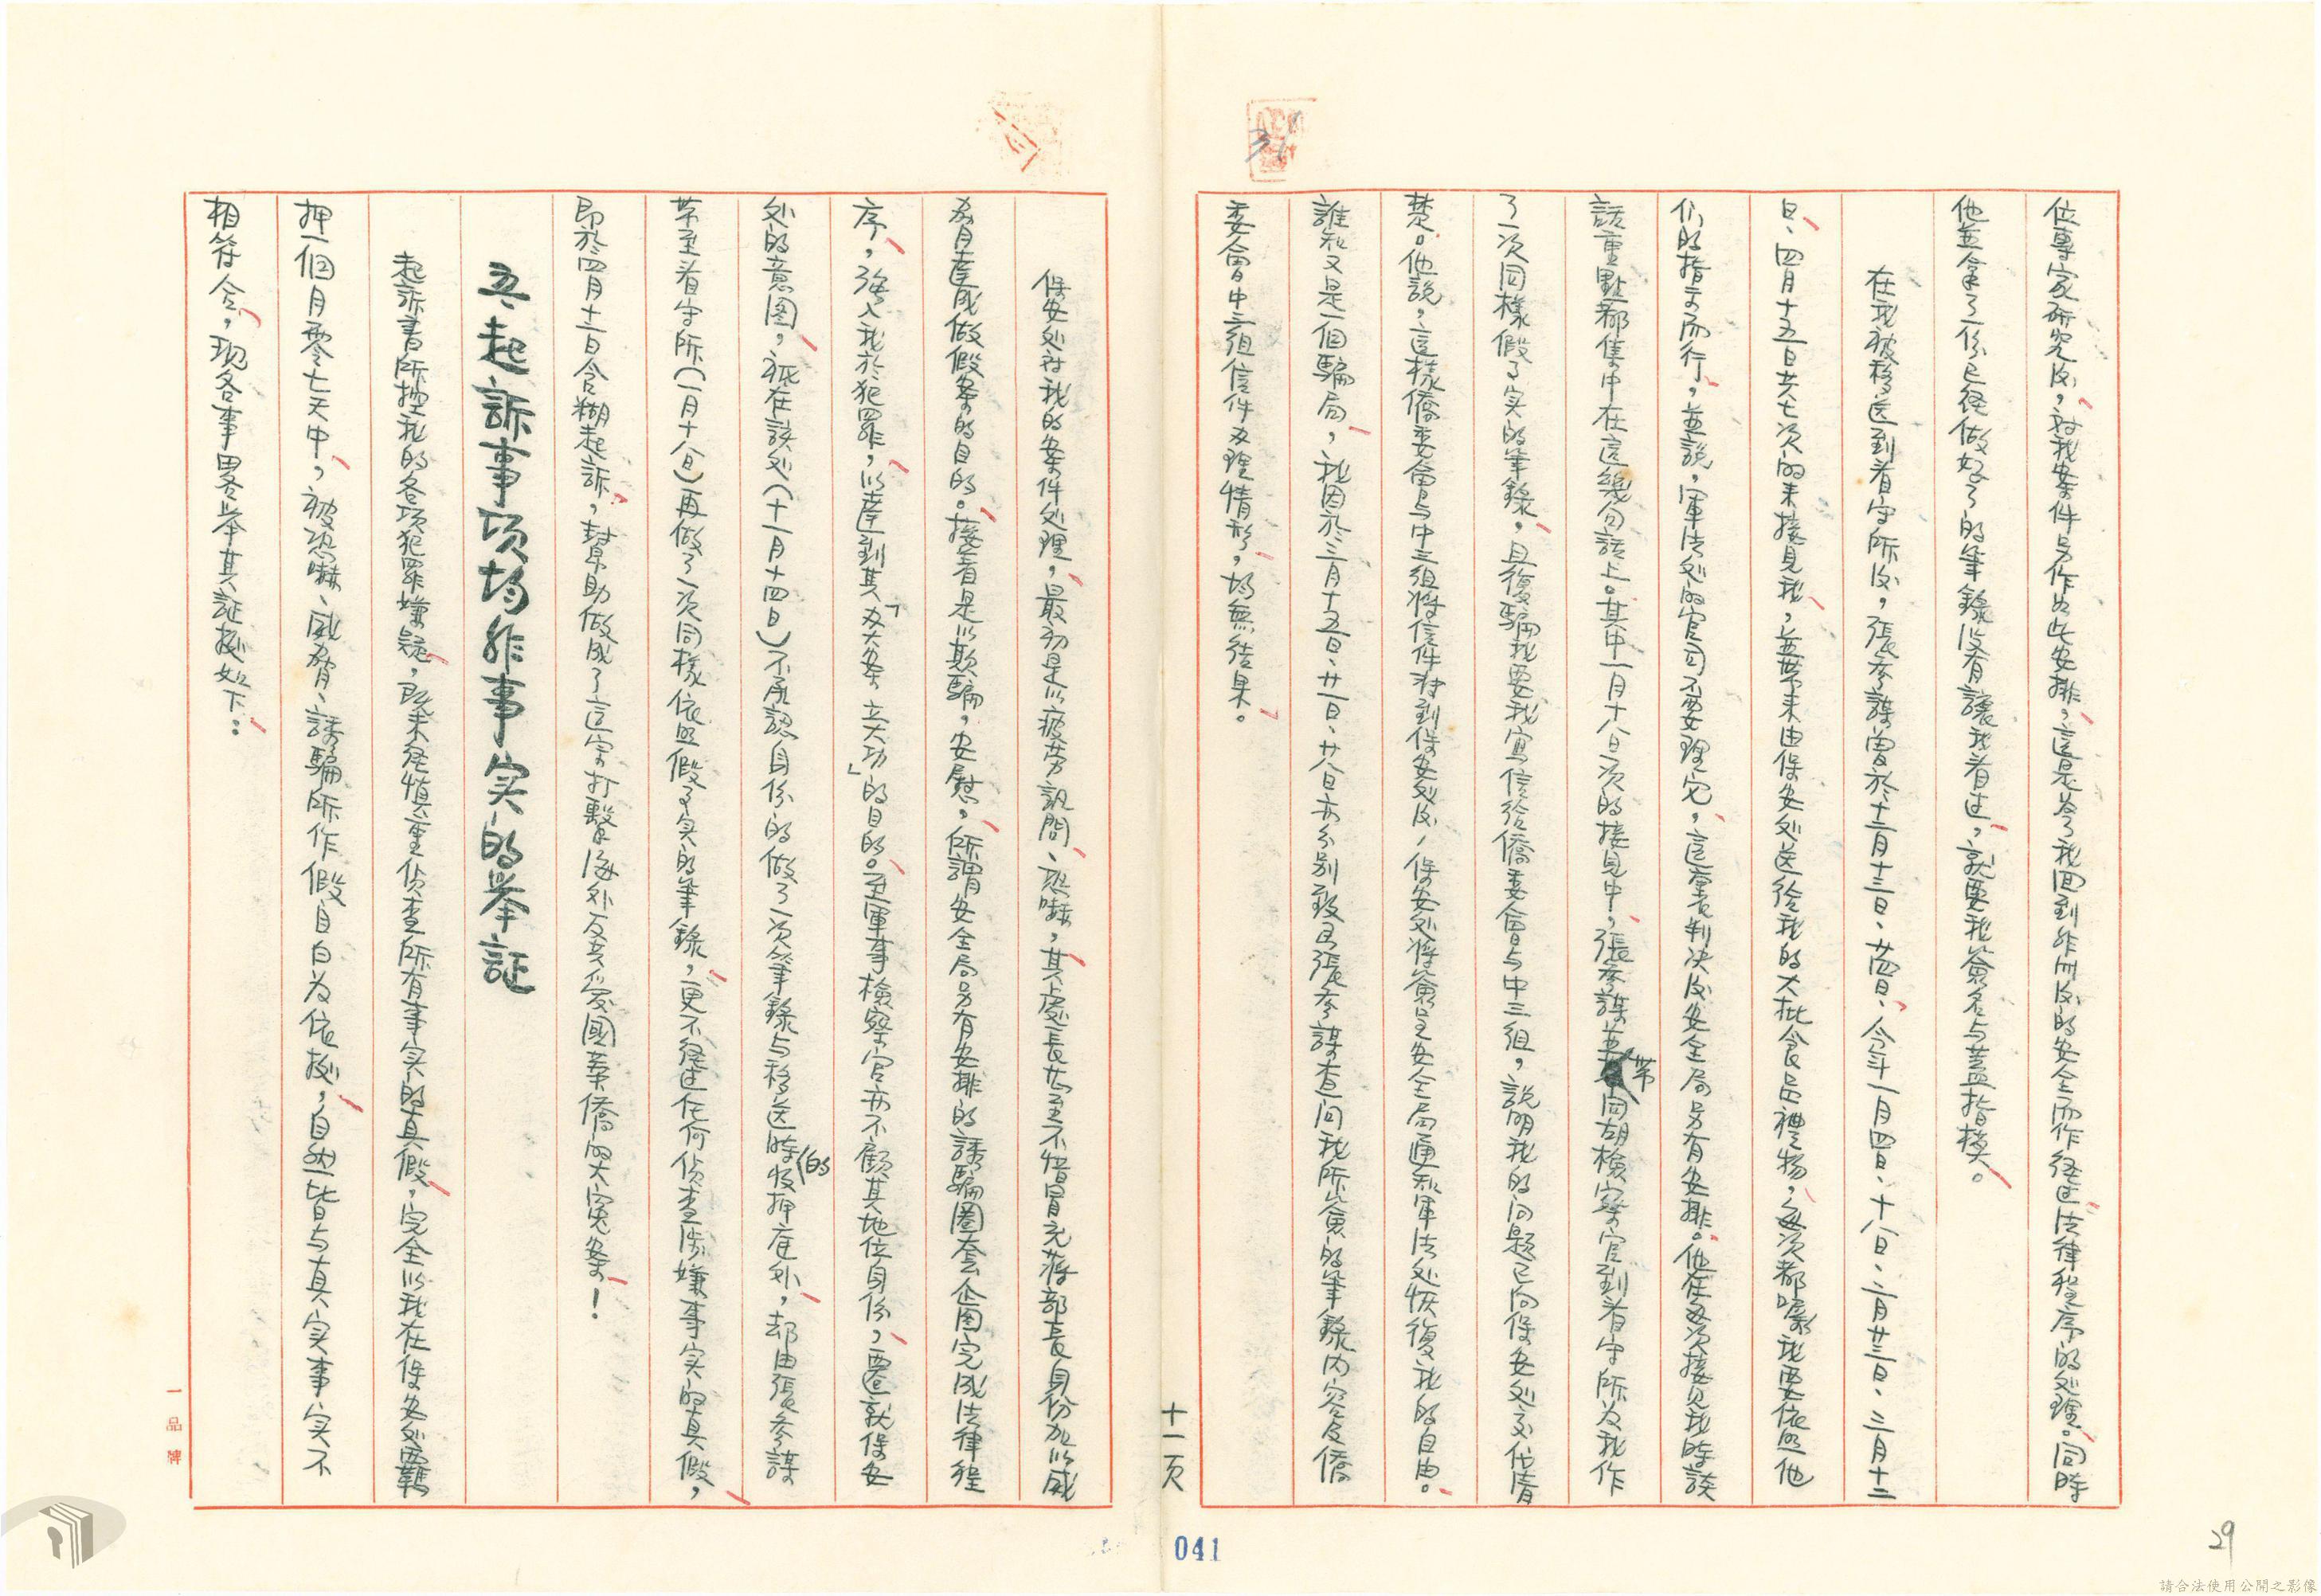 位專家研究后，对我案件另作如此安排，這是为了我回到非洲后的安全而作経过法律程序的处理。同時
他並拿了一份已経做好了的筆錄沒有讓我看过，就要我簽名与蓋指模。
在我被移送到看守所后，張參謀曾於十二月十三日、廿四日、今年一月四日、十八日、二月廿三日、三月十二
日、四月十五日共七次的来接見我，並帶来由保安处送給我的大批食品禮物，每次都嘱我要依照他
们的指示而行，並說，軍法处的官司不要理它，這案判决后安全局另有安排。他在每次接见我時談
話重點都集中在這幾句話上。其中一月十八日一次的接見中，張參謀並帶同胡檢察官到看守所为我作
了一次同樣假了实的筆錄，且復騙我要我寫信給僑委會与中三組，說明我的问題已向保安处交代清
楚。他說，這樣僑委會与中三組將信件对到保安处后，保安处將簽呈安全局通知軍法处恢復我的自由。
誰知又是一個騙局，我因於三月十五日、廿一日、廿八日亦分别致函張參謀查问我所簽的筆錄內容及僑
委會中三組信件办理情形，均無结果。
十一页
保安处对我的案件处理，最初是以疲劳訊問、恐嚇，其處長甚至不惜冒充蔣部長身份加以威
脅達成做假案的目的。接着是以欺騙，安慰，所謂安全局另有安排的誘騙圈套企图完成法律程
序，強入我於犯罪，以達到其「办大案 立大功」的目的。至軍事檢察官亦不顧其地位身份，遷就保安
处的意图，祇在該处（十一月十四日）不承認身份的做了一次筆錄与移送時的收押庭外，却由張參謀
帶至看守所（一月十八日）再做了一次同樣依照假了实的筆錄，更不経过任何偵查涉嫌事实的真假，
即於四月十一日含糊起訴，幫助做成了這宗打擊海外反共爱國華僑的大寃案！
五、起訴事项均非事实的举証
起訴書所控我的各项犯罪嫌疑，既未経慎重偵查所有事实的真假，完全以我在保安处覊
押一個月零七天中，被恐嚇、威脅、誘騙所作假自白为依据，自然皆与真实事实不
相符合，现各事畧举其証据如下：
一品牌
041
29
請合法使用公開之影像